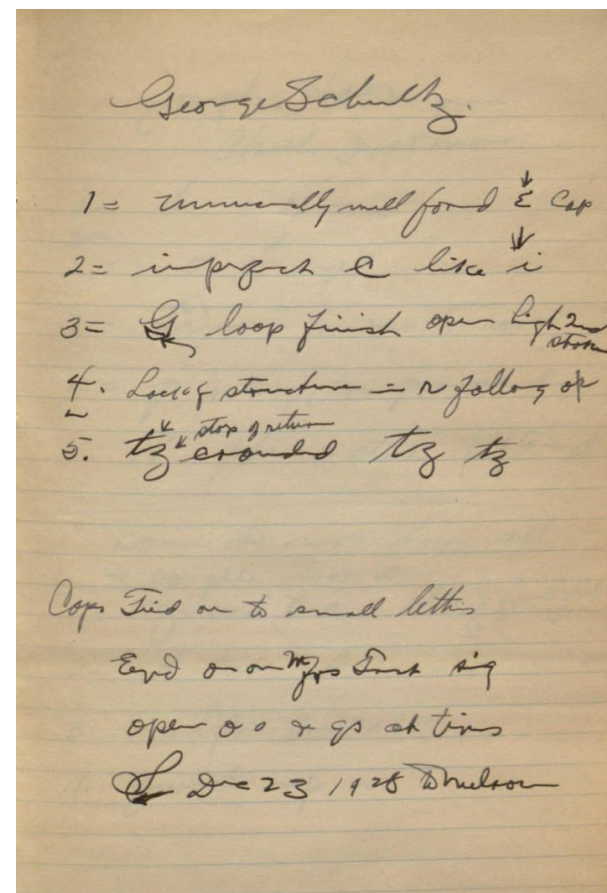 George Schultz.
1 = unusually well formed E Cap
2 = imperfect e like i
3 = G loop finish open high 2nd
stroke
4. Lack of structure = r following o
stop of return
5. tz crowded tz tz
Caps Tied on to small letters
on on sig
open o o & gs at times
Dec 23 1928 to